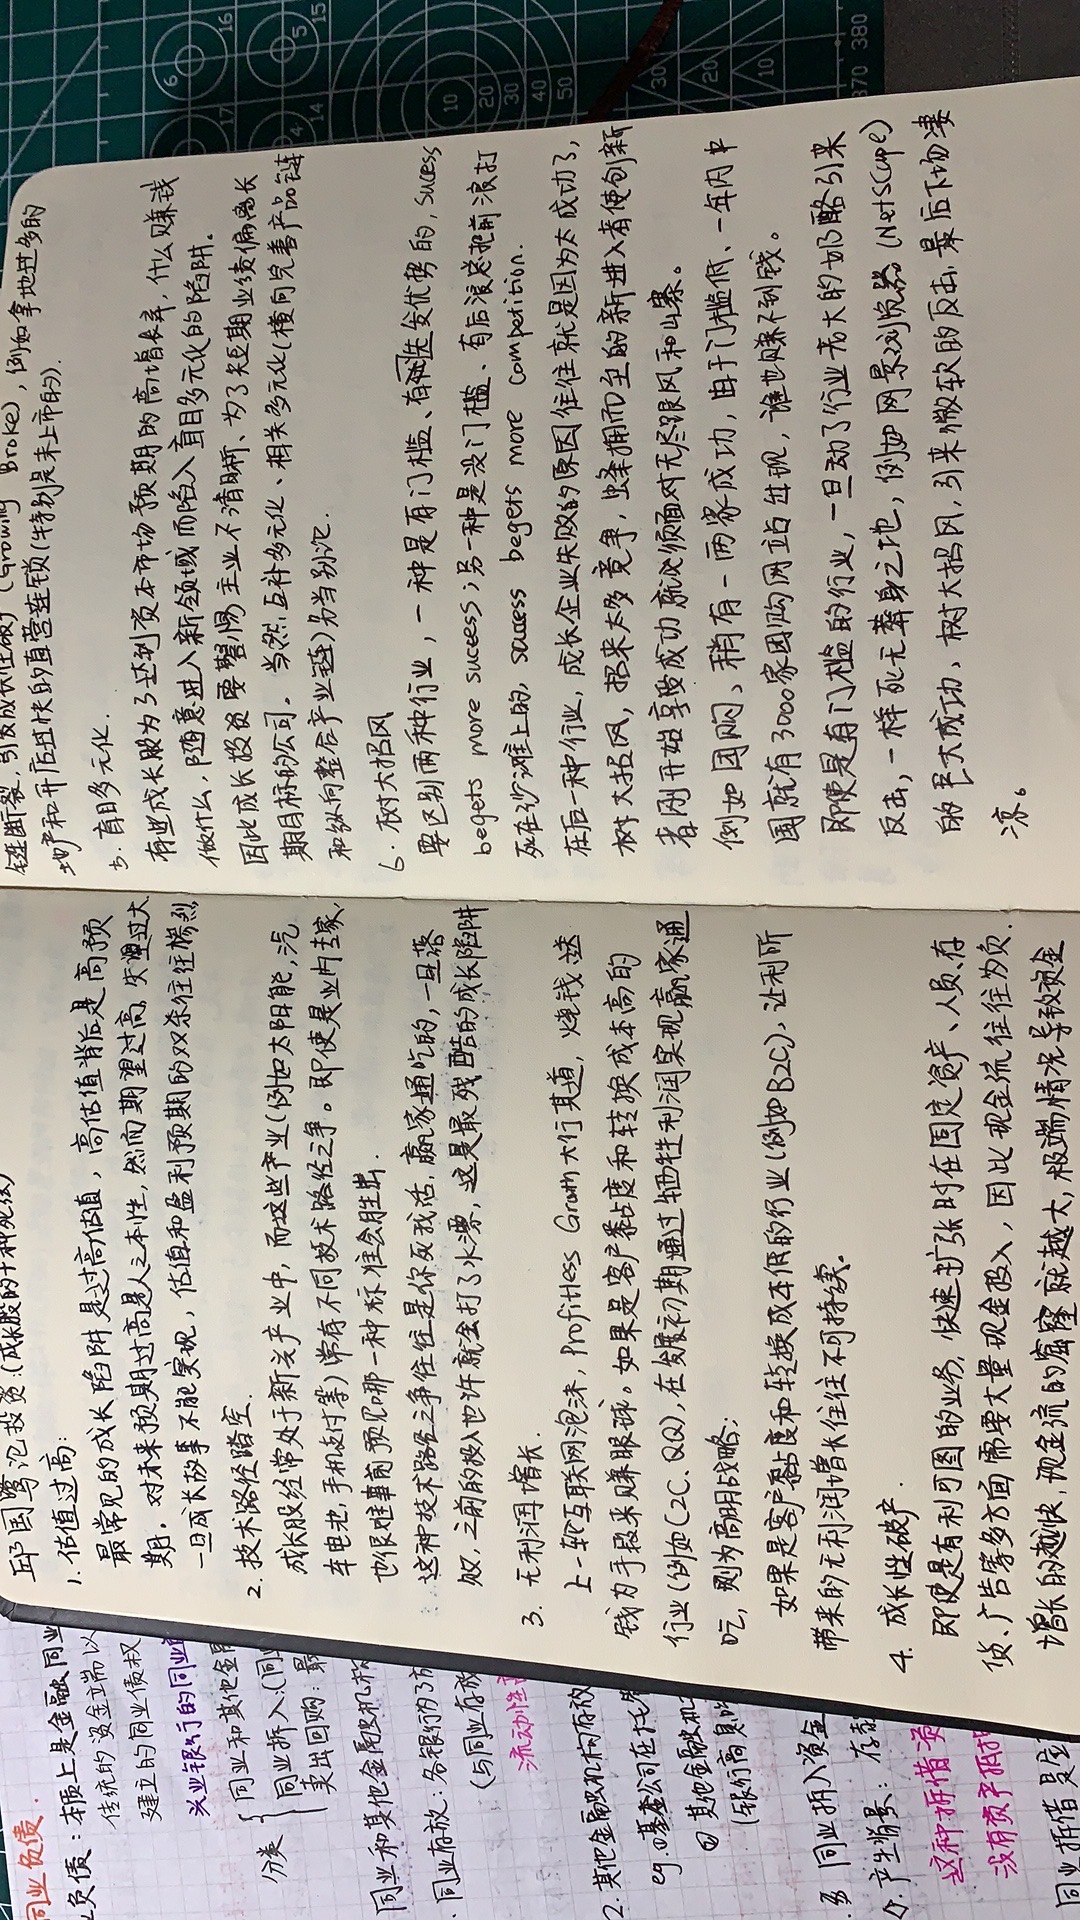 邱国鹭论投资:(成长股的十种死法)
1. 估值过高:
最常见的成长陷阱是过高估值，高估值背后是高预
期，对未来预期过高是人之本性，然而期望过高，失望过大
一旦成长故事不能实现，估值和盈利预期的双杀往往惨烈
2. 技术路径踏空.
成长股经常处于新兴产业中，而这些产业(例如太阳能，汽
车电池，手机支付等)常有不同技术路径之争。即使是业内专家，
也很难事前预见哪一种标准会胜出.
这种技术路径之争往往是你死我活，赢家通吃的，一旦落
败，之前的投入也许就会打了水漂，这是最残酷的成长陷阱
3. 无利润增长.
上一轮互联网泡沫，Profitless Growth大行其道，烧钱送
钱为手段来赚眼球。如果是客户黏度和转换成本高的
行业(例如C2C、QQ)，在发展初期通过牺牲利润实现赢家通
吃，则为高明战略；
如果是客户黏度和转换成本低的行业(例如B2C)，让利所
带来的无利润增长往往不可持续。
4. 成长性破产.
即使是有利可图的业务，快速扩张时在固定资产、人员、存
货、广告等多方面需要大量现金投入，因此现金流往往为负.
增长的越快，现金流的窟窿就越大，极端情况导致资金
链断裂，引发成长性破产(Growing Broke)，例如拿地过多的
地产和开店过快的直营连锁(特别是未上市的).
5. 盲目多元化.
有些成长股为了达到资本市场预期的高增长率，什么赚钱
做什么，随意进入新领域而陷入盲目多元化的陷阱。
因此成长投资要警惕主业不清晰、为了短期业绩偏离长
期目标的公司. 当然，互补多元化、相关多元化(横向完善产品链
和纵向整合产业链)另当别论.
6. 树大招风
要区别两种行业，一种是有门槛、有先发优势的，sucess
begets more sucess；另一种是没门槛、有后浪总把前浪打
死在沙滩上的，success begets more competition.
在后一种行业，成长企业失败的原因往往就是因为太成功了，
树大招风，招来太多竞争，蜂拥而至的新进入者使创新
者刚开始享受成功就必须面对无尽跟风和山寨。
例如团购，稍有一两家成功，由于门槛低、一年内中
国就有3000家团购网站出现，谁也赚不到钱。
即使是有门槛的行业，一旦动了行业老大的奶酪引来
反击，一样死无葬身之地，例如网景浏览器(NetScape)
的巨大成功，树大招风，引来微软的反击，最后下场凄
凉。
同业负债.
负债：本质上是金融同业
传统的资金端以
建立的同业债权
兴业银行的同业
分类
同业和其他金融
同业拆入(同
卖出回购：最
同业和其他金融机构
同业存放：各银行为了
(与同业存放
流动性
2. 其他金融机构存放
eg. ①基金公司在托
② 其他金融机
(银行高息
同业拆入资金
产生背景：存款
这种拆借资
没有资产抵押
同业拆借是应